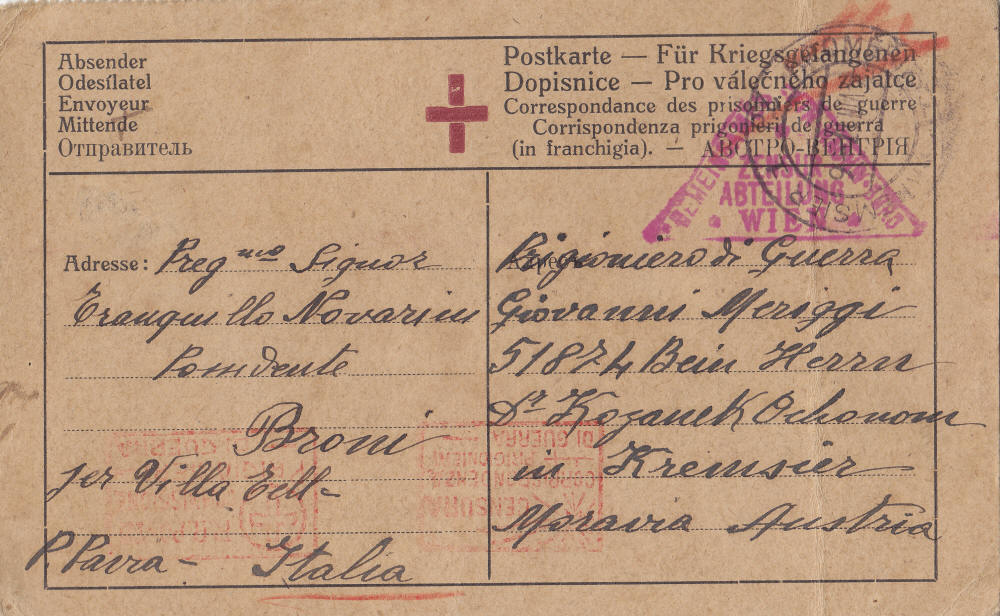 Absender
Odesílatel
Envoyeur
Mittende
Отправитель
Postkarte — Für Kriegsgefangenen
Dopisnice — Pro válečného zajatce
Correspondance des prisonniers de guerre
Corrispondenza prigionieri di guerra
(in franchigia). — АВСТРО-ВЕНГРІЯ
ZENSUR
ABTEILUNG
WIEN
Adresse: Preg mo Signor
Tranquillo Novarini
Possidente
Broni
per Villa
P. Pavia — Italia
Prigioniero di Guerra
Giovanni Meriggi
51874 Bein Herrn
Dr Kozanek
in Kremsier
Moravia Austria
CENSURA
CORRISPONDENZA
PRIGIONIERI
DI GUERRA